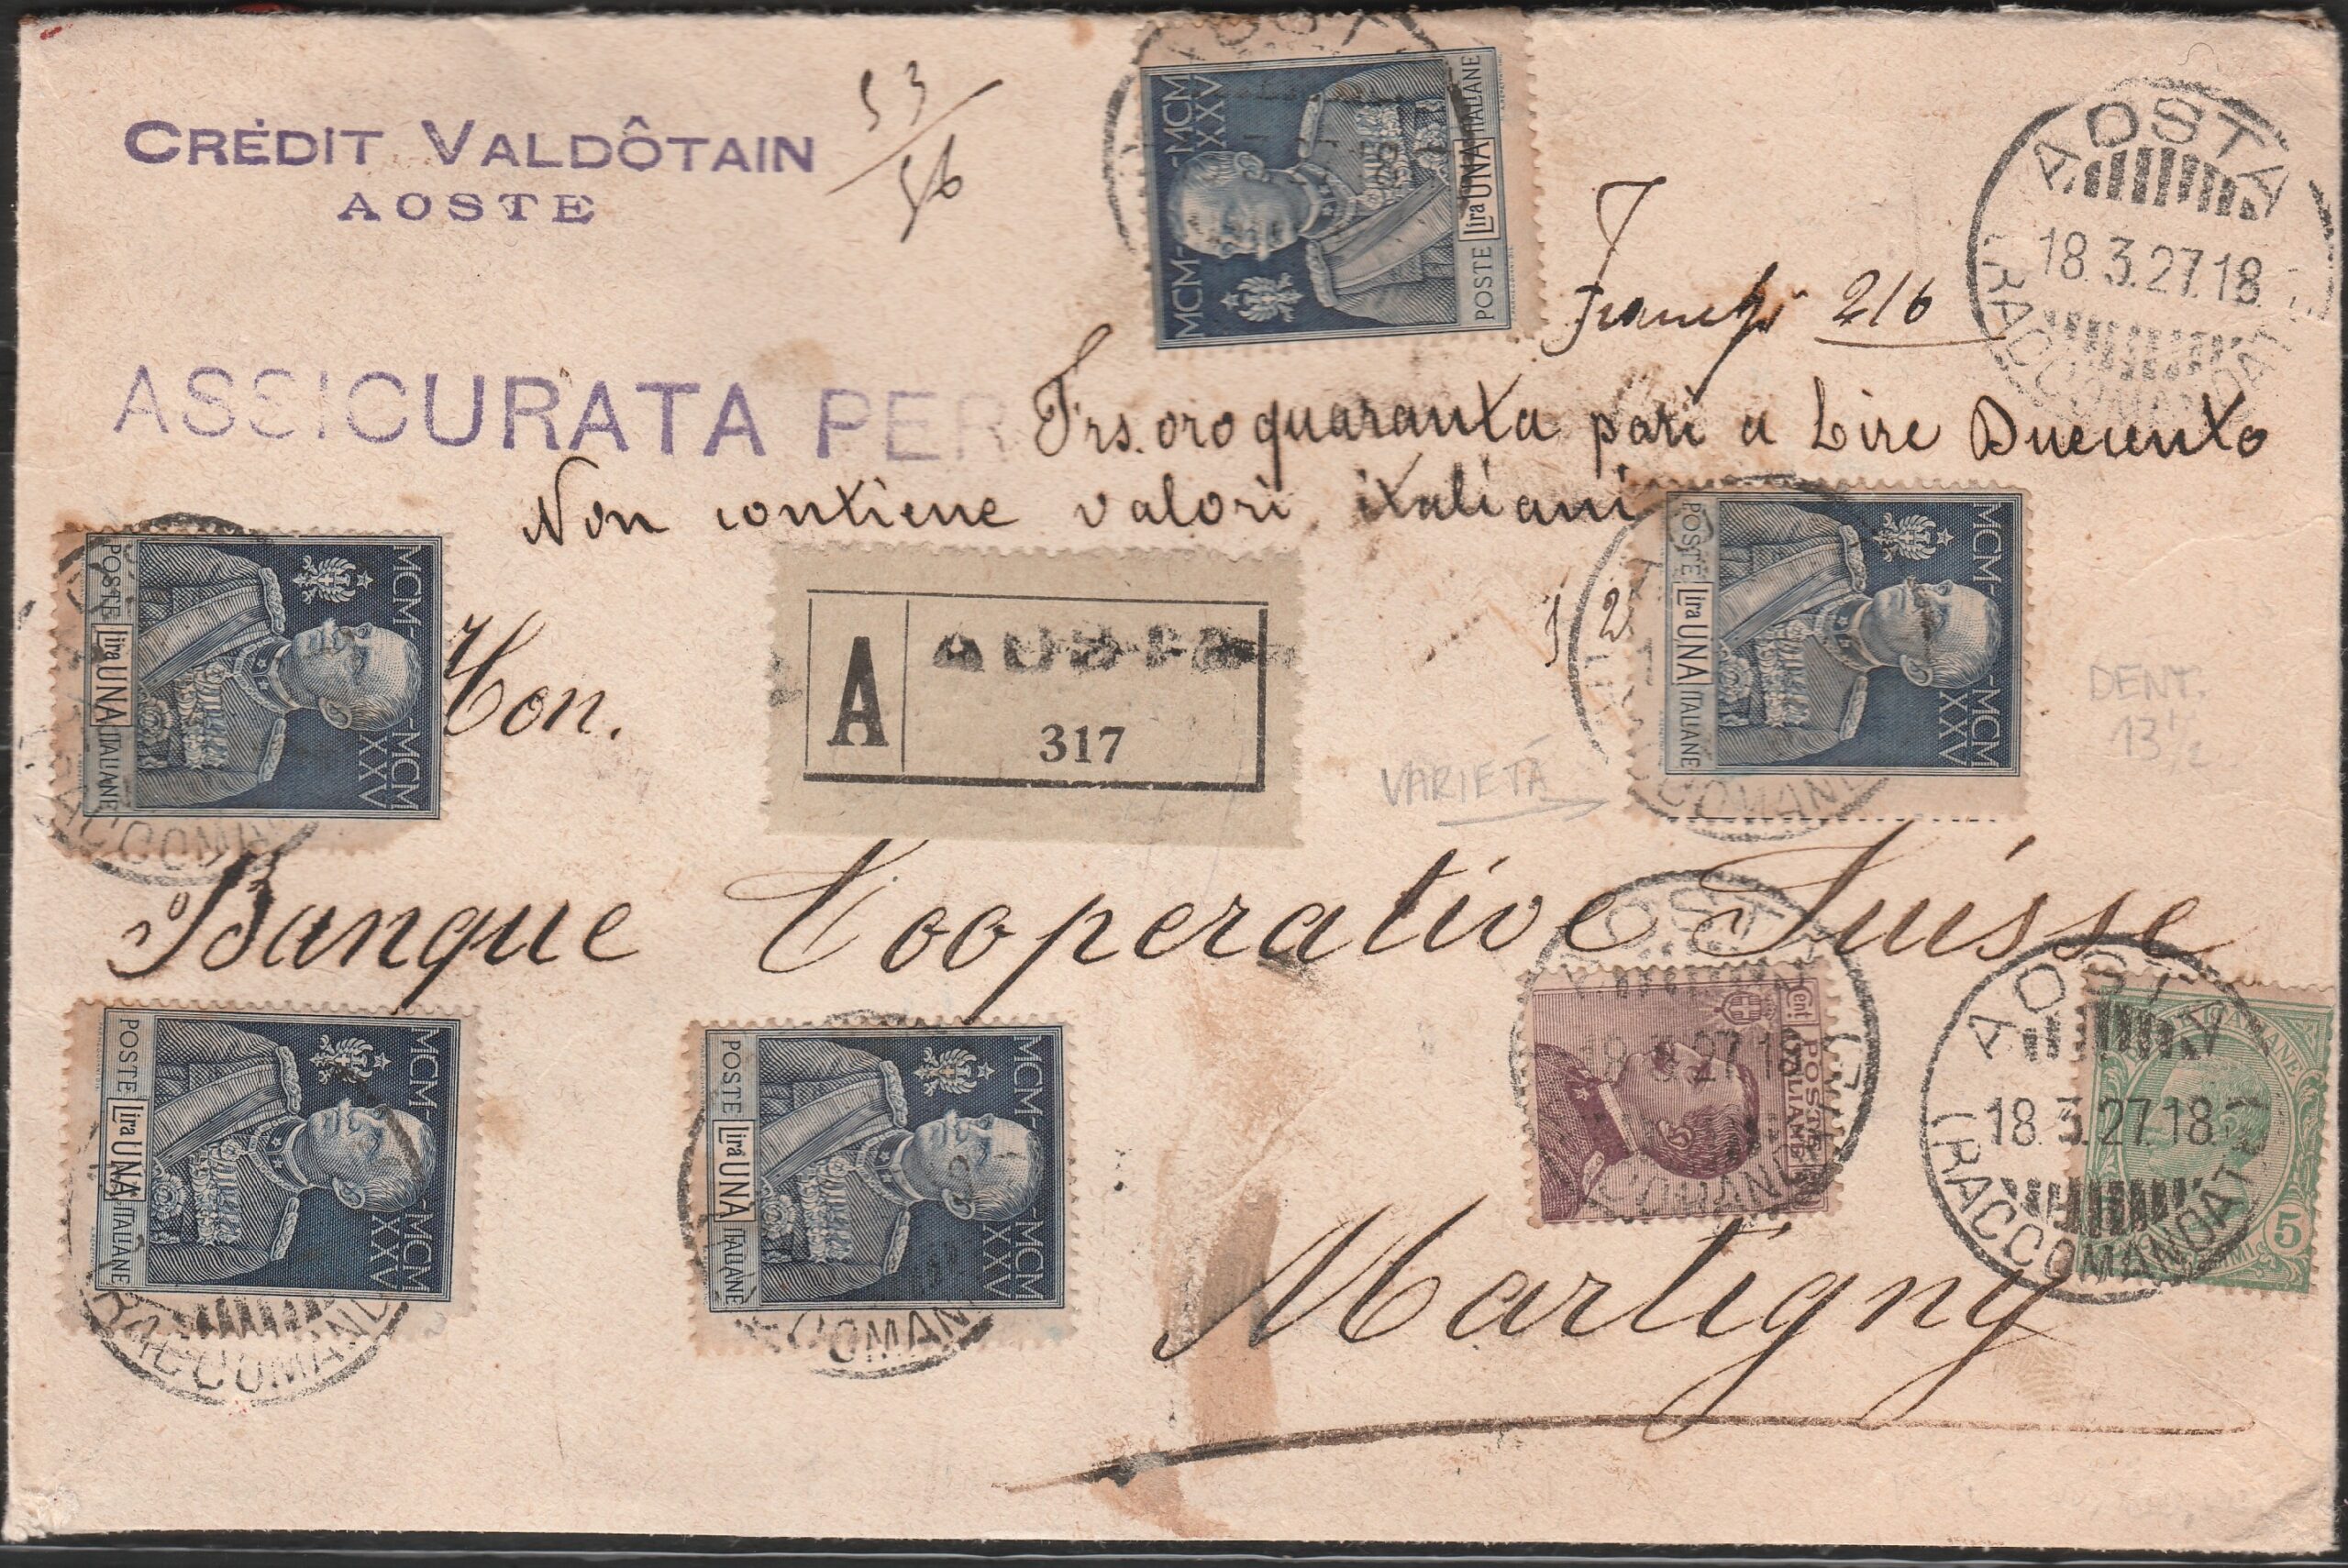 CRÉDIT VALDÔTAIN
AOSTE
53/56
AOSTA
18.3.27.18
(RACCOMANDAT
MCM-MCM
XXV
POSTE Lira UNA ITALIANE
216
ASSICURATA PER Frs. oro quaranta pari a Lire Duecento
Non contiene valori italiani
MCM-MCM
XXV
POSTE Lira UNA ITALIANE
MCM-MCM
XXV
POSTE Lira UNA ITALIANE
Hon.
A
AOSTA
317
VARIETÁ
DENT.
13 1/2
Banque Cooperative Suisse
MCM-MCM
XXV
POSTE Lira UNA ITALIANE
MCM-MCM
XXV
POSTE Lira UNA ITALIANE
Cent
POSTE
ITALIANE
AOSTA
18.3.27.18
(RACCOMANDATE)
5
Martigny